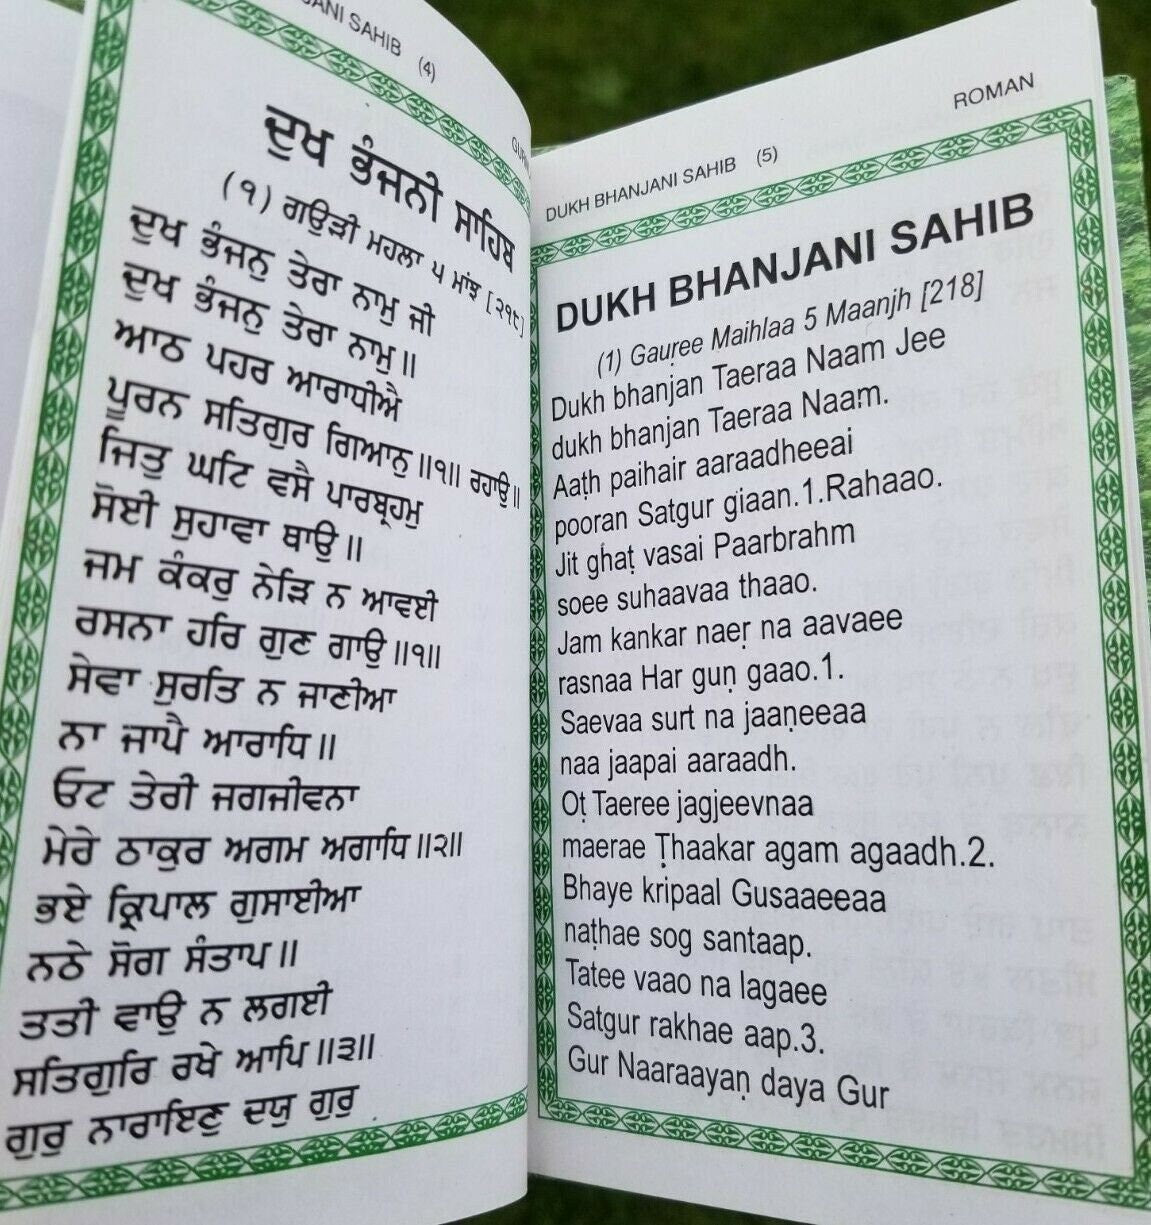 JANI SAHIB (4)
ਦੁਖ ਭੰਜਨੀ ਸਾਹਿਬ
(੧) ਗਉੜੀ ਮਹਲਾ ੫ ਮਾਂਝ [੨੧੮]
ਦੁਖ ਭੰਜਨੁ ਤੇਰਾ ਨਾਮੁ ਜੀ
ਦੁਖ ਭੰਜਨੁ ਤੇਰਾ ਨਾਮੁ॥
ਆਠ ਪਹਰ ਆਰਾਧੀਐ
ਪੂਰਨ ਸਤਿਗੁਰ ਗਿਆਨੁ॥੧॥ ਰਹਾਉ॥
ਜਿਤੁ ਘਟਿ ਵਸੈ ਪਾਰਬ੍ਰਹਮੁ
ਸੋਈ ਸੁਹਾਵਾ ਥਾਉ॥
ਜਮ ਕੰਕਰੁ ਨੇੜਿ ਨ ਆਵਈ
ਰਸਨਾ ਹਰਿ ਗੁਣ ਗਾਉ॥੧॥
ਸੇਵਾ ਸੁਰਤਿ ਨ ਜਾਣੀਆ
ਨਾ ਜਾਪੈ ਆਰਾਧਿ॥
ਓਟ ਤੇਰੀ ਜਗਜੀਵਨਾ
ਮੇਰੇ ਠਾਕੁਰ ਅਗਮ ਅਗਾਧਿ॥੨॥
ਭਏ ਕ੍ਰਿਪਾਲ ਗੁਸਾਈਆ
ਨਠੇ ਸੋਗ ਸੰਤਾਪ॥
ਤਤੀ ਵਾਉ ਨ ਲਗਈ
ਸਤਿਗੁਰਿ ਰਖੇ ਆਪਿ॥੩॥
ਗੁਰੁ ਨਾਰਾਇਣੁ ਦਯੁ ਗੁਰੁ
DUKH BHANJANI SAHIB (5) ROMAN
DUKH BHANJANI SAHIB
(1) Gauṛee Maihlaa 5 Maanjh [218]
Dukh bhanjan Taeraa Naam Jee
dukh bhanjan Taeraa Naam.
Aaṭh paihair aaraadheeai
pooran Satgur giaan.1.Rahaao.
Jit ghaṭ vasai Paarbrahm
soee suhaavaa thaao.
Jam kankar naeṛ na aavaee
rasnaa Har guṇ gaao.1.
Saevaa surt na jaaṇeeaa
naa jaapai aaraadh.
Oṭ Taeree jagjeevnaa
maerae Ṭhaakar agam agaadh.2.
Bhaye kripaal Gusaaeeaa
naṭhae sog santaap.
Tatee vaao na lagaee
Satgur rakhae aap.3.
Gur Naaraayaṇ daya Gur